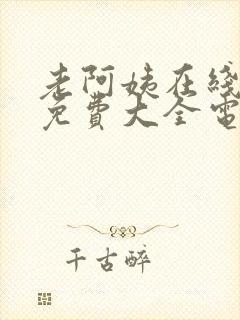 老阿姨在线
免費大全電
千古醉